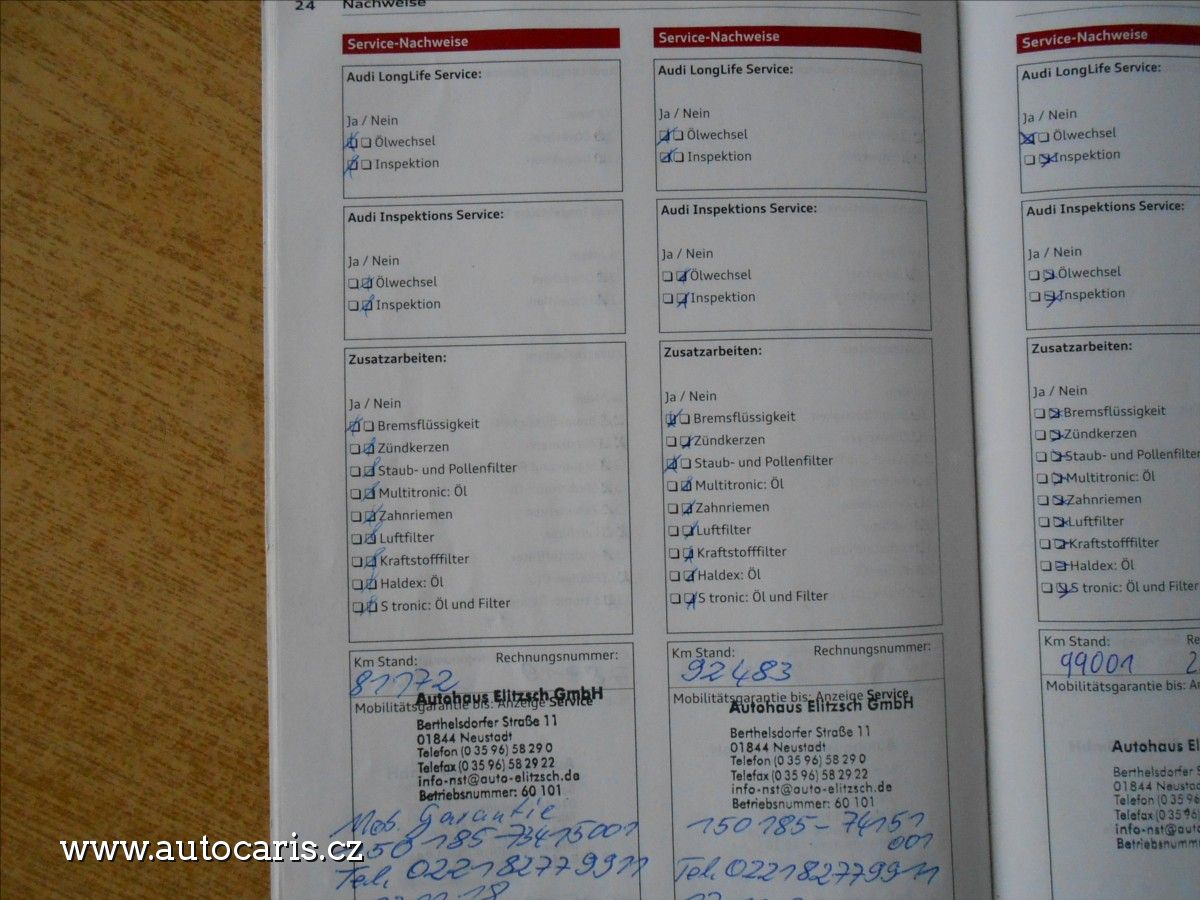 24 Nachweise
Service-Nachweise
Audi LongLife Service:
Ja / Nein
Ölwechsel
Inspektion
Audi Inspektions Service:
Ja / Nein
Ölwechsel
Inspektion
Zusatzarbeiten:
Ja / Nein
Bremsflüssigkeit
Zündkerzen
Staub- und Pollenfilter
Multitronic: Öl
Zahnriemen
Luftfilter
Kraftstofffilter
Haldex: Öl
S tronic: Öl und Filter
Km Stand: Rechnungsnummer:
81172
Mobilitätsgarantie bis: Anzeige Service
Autohaus Elitzsch GmbH
Berthelsdorfer Straße 11
01844 Neustadt
Telefon (0 35 96) 58 29 0
Telefax (0 35 96) 58 29 22
info-nst@auto-elitzsch.de
Betriebsnummer: 60 101
Mob. Garantie
Tel. 022182779911
Service-Nachweise
Audi LongLife Service:
Ja / Nein
Ölwechsel
Inspektion
Audi Inspektions Service:
Ja / Nein
Ölwechsel
Inspektion
Zusatzarbeiten:
Ja / Nein
Bremsflüssigkeit
Zündkerzen
Staub- und Pollenfilter
Multitronic: Öl
Zahnriemen
Luftfilter
Kraftstofffilter
Haldex: Öl
S tronic: Öl und Filter
Km Stand: Rechnungsnummer:
92483
Mobilitätsgarantie bis: Anzeige Service
Autohaus Elitzsch GmbH
Berthelsdorfer Straße 11
01844 Neustadt
Telefon (0 35 96) 58 29 0
Telefax (0 35 96) 58 29 22
info-nst@auto-elitzsch.de
Betriebsnummer: 60 101
150185-74151
001
Tel. 022182779911
Service-Nachweise
Audi LongLife Service:
Ja / Nein
Ölwechsel
Inspektion
Audi Inspektions Service:
Ja / Nein
Ölwechsel
Inspektion
Zusatzarbeiten:
Ja / Nein
Bremsflüssigkeit
Zündkerzen
Staub- und Pollenfilter
Multitronic: Öl
Zahnriemen
Luftfilter
Kraftstofffilter
Haldex: Öl
S tronic: Öl und Filter
Km Stand: Re
99001 2
Mobilitätsgarantie bis: A
Autohaus El
Berthelsdorfer S
01844 Neustad
Telefon (0 35 96
Telefax (0 35 96
info-nst@auto-
Betriebsnumme
www.autocaris.cz